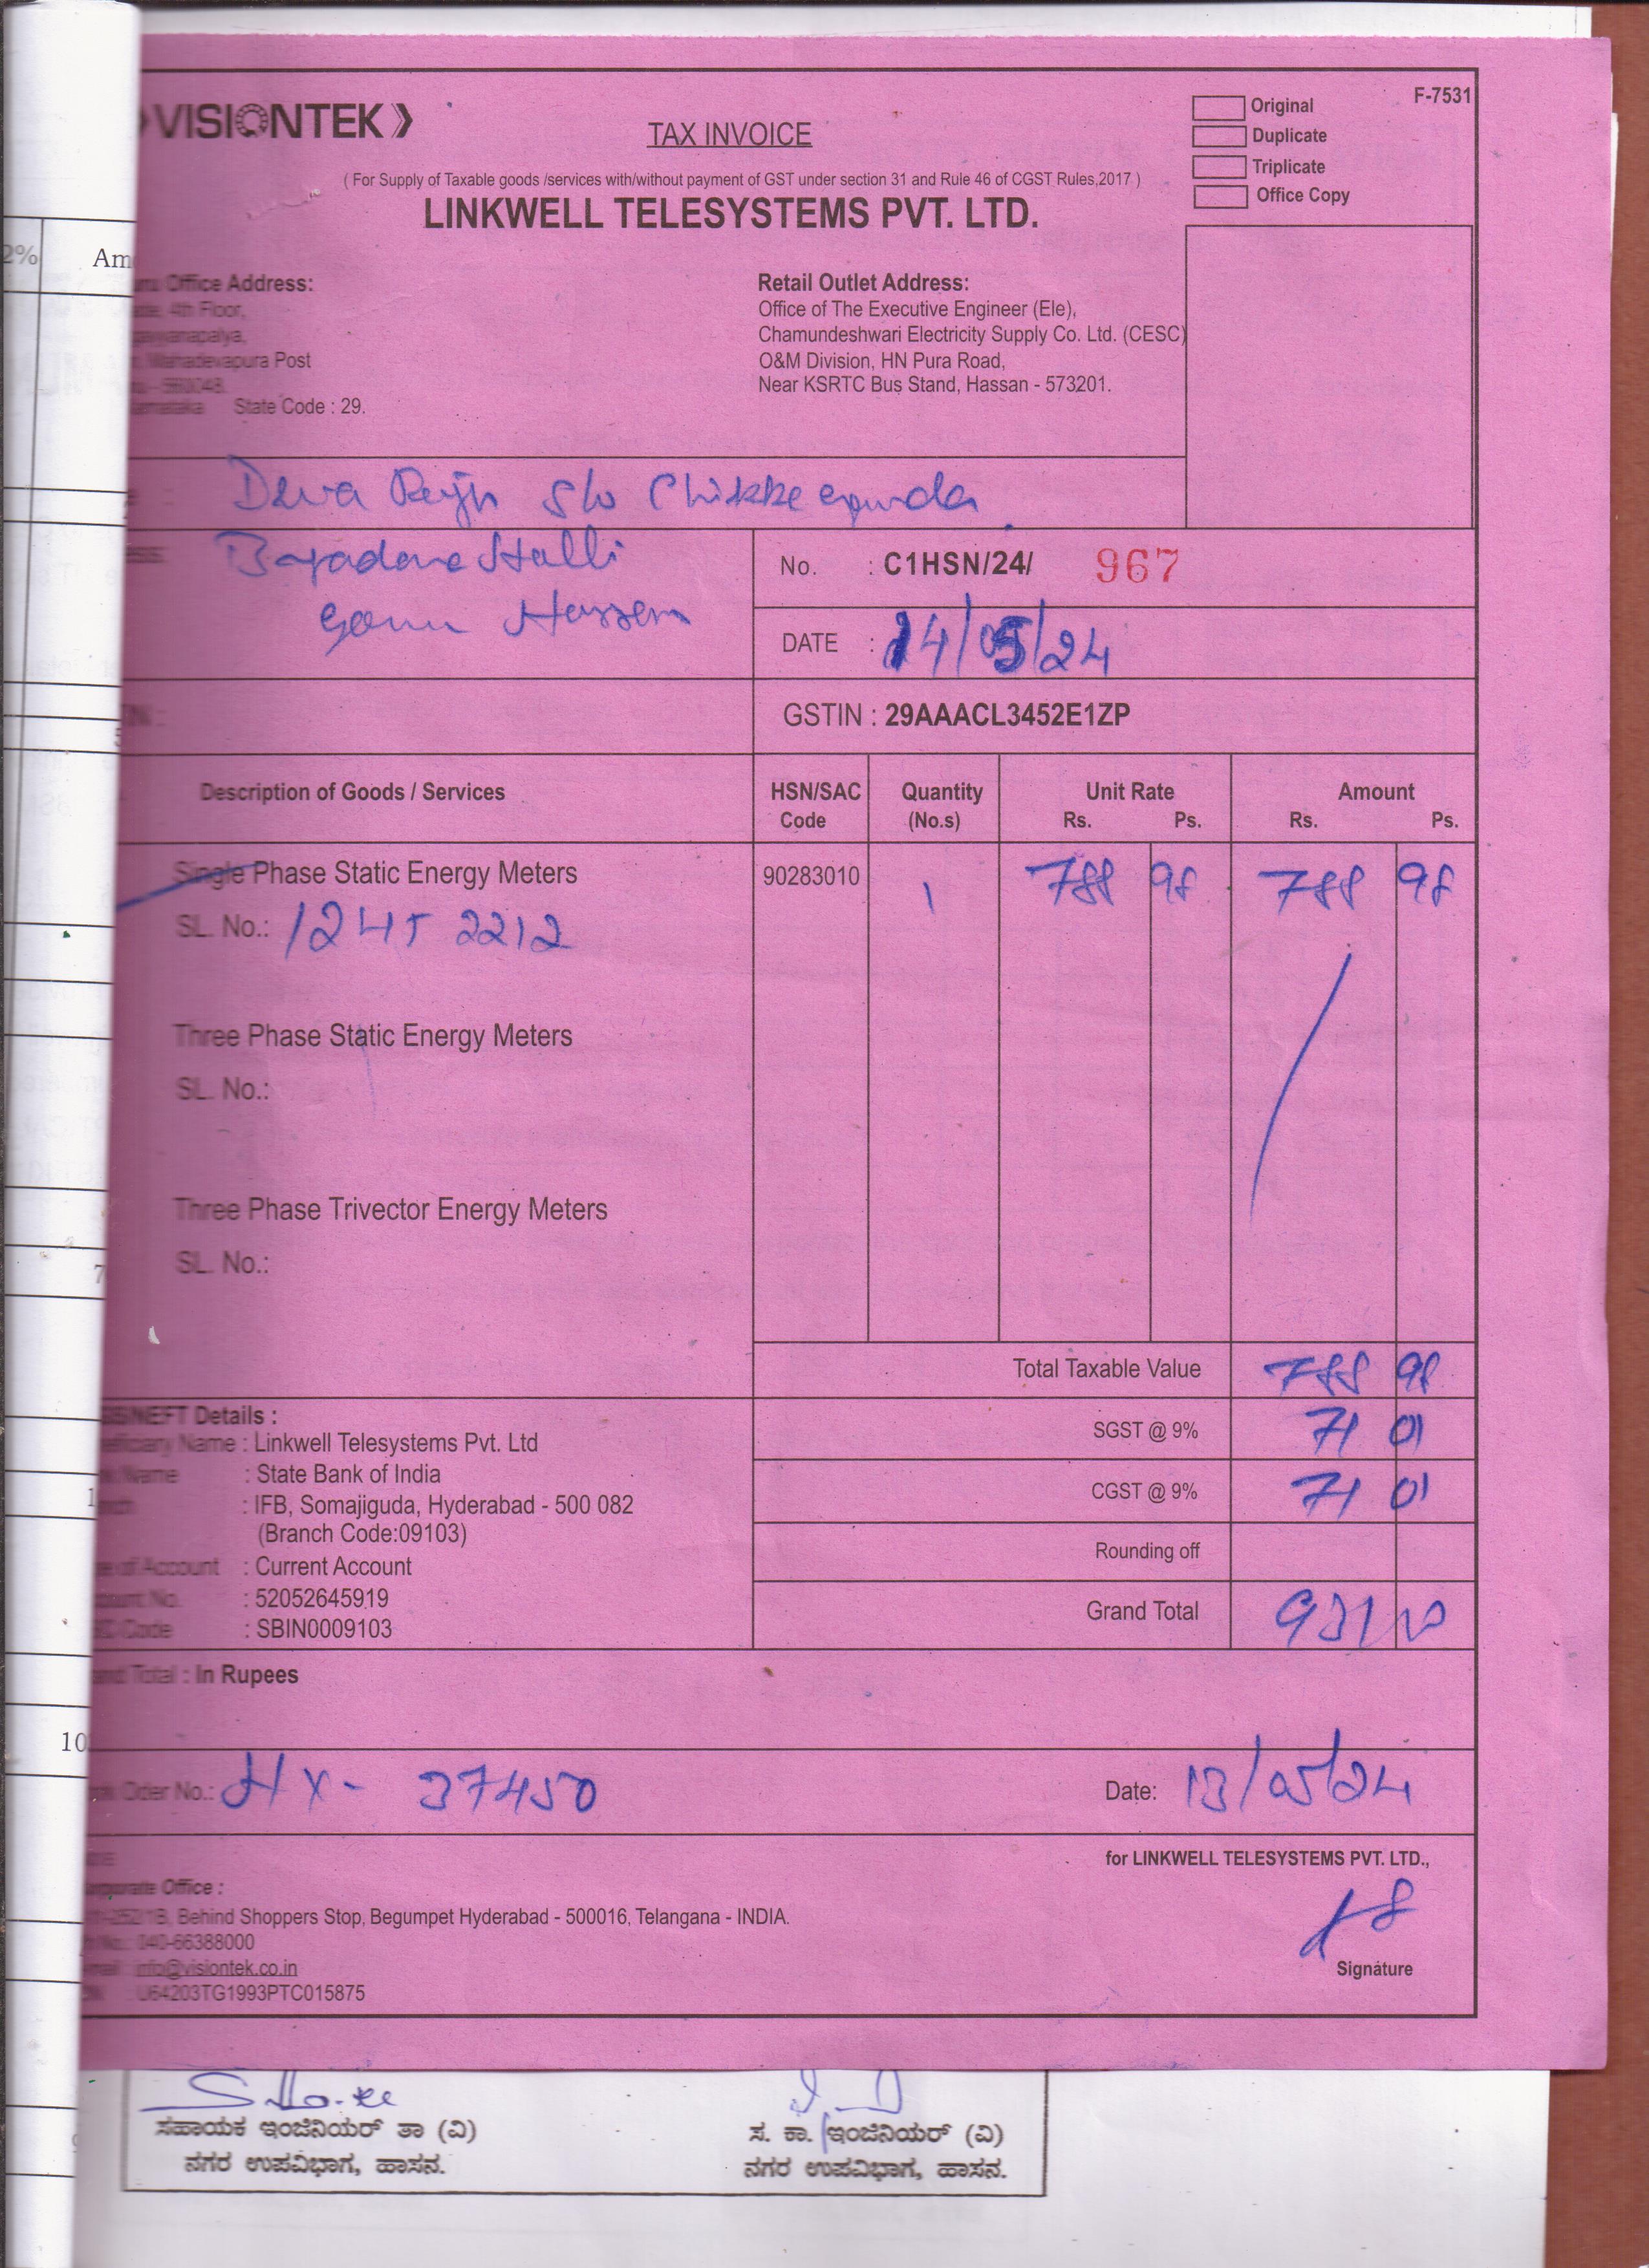 VISIONTEK
TAX INVOICE
Original
Duplicate
Triplicate
Office Copy
F-7531
( For Supply of Taxable goods /services with/without payment of GST under section 31 and Rule 46 of CGST Rules,2017 )
LINKWELL TELESYSTEMS PVT. LTD.
2%
Office Address:
4th Floor,
Mahadevapura Post
- 560048.
State Code : 29.
Retail Outlet Address:
Office of The Executive Engineer (Ele),
Chamundeshwari Electricity Supply Co. Ltd. (CESC)
O&M Division, HN Pura Road,
Near KSRTC Bus Stand, Hassan - 573201.
: Deva S/o
Hassan
No. : C1HSN/24/ 967
DATE : 14/05/24
GSTIN : 29AAACL3452E1ZP
Description of Goods / Services
HSN/SAC Code
Quantity (No.s)
Unit Rate Rs. Ps.
Amount Rs. Ps.
Single Phase Static Energy Meters 90283010 1 788 98 788 98
SL. No.: 1245 2212
Three Phase Static Energy Meters
SL. No.:
Three Phase Trivector Energy Meters
SL. No.:
Total Taxable Value 788 98
SGST @ 9% 71 01
CGST @ 9% 71 01
Rounding off
Grand Total 931
Details :
Name : Linkwell Telesystems Pvt. Ltd
Name : State Bank of India
: IFB, Somajiguda, Hyderabad - 500 082
(Branch Code:09103)
of Account : Current Account
No. : 52052645919
Code : SBIN0009103
Total : In Rupees
Order No.: HX- 37450
Date: 13/05/24
for LINKWELL TELESYSTEMS PVT. LTD.,
Office :
Behind Shoppers Stop, Begumpet Hyderabad - 500016, Telangana - INDIA.
: 040-66388000
info@visiontek.co.in
: U64203TG1993PTC015875
Signature
ಸಹಾಯಕ ಇಂಜಿನಿಯರ್ ತಾ (ವಿ)
ನಗರ ಉಪವಿಭಾಗ, ಹಾಸನ.
ಸ. ಕಾ. ಇಂಜಿನಿಯರ್ (ವಿ)
ನಗರ ಉಪವಿಭಾಗ, ಹಾಸನ.